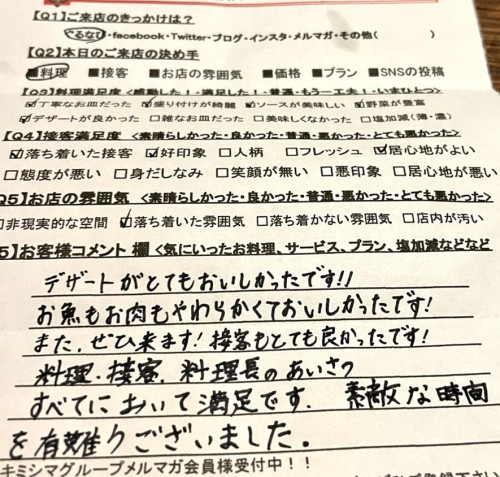 【Q1】ご来店のきっかけは？
ぐるなび・facebook・Twitter・ブログ・インスタ・メルマガ・その他(　　　)
【Q2】本日のご来店の決め手
■料理　■接客　■お店の雰囲気　■価格　■プラン　■SNSの投稿
【Q3】料理満足度 <感動した！・満足した！・普通・もう一工夫！・いまひとつ>
☑丁寧なお皿だった　☑盛り付けが綺麗　☑ソースが美味しい　☑野菜が豊富
☑デザートが良かった　□雑なお皿だった　□美味しくなかった　□塩加減(薄・濃)
【Q4】接客満足度　<素晴らしかった・良かった・普通・悪かった・とても悪かった>
☑落ち着いた接客　☑好印象　□人柄　□フレッシュ　☑居心地がよい
□態度が悪い　□身だしなみ　□笑顔が無い　□悪印象　□居心地が悪い
Q5】お店の雰囲気　<素晴らしかった・良かった・普通・悪かった・とても悪かった>
□非現実的な空間　☑落ち着いた雰囲気　□落ち着かない雰囲気　□店内が汚い
5】お客様コメント 欄 <気にいったお料理、サービス、プラン、塩加減などなど
デザートがとてもおいしかったです!!
お魚もお肉もやわらかくておいしかったです!
また、ぜひ来ます! 接客もとても良かったです!
料理、接客、料理長のあいさつ
すべてにおいて満足です. 素敵な時間
を有難うございました.
キミシマグループメルマガ会員様受付中！！